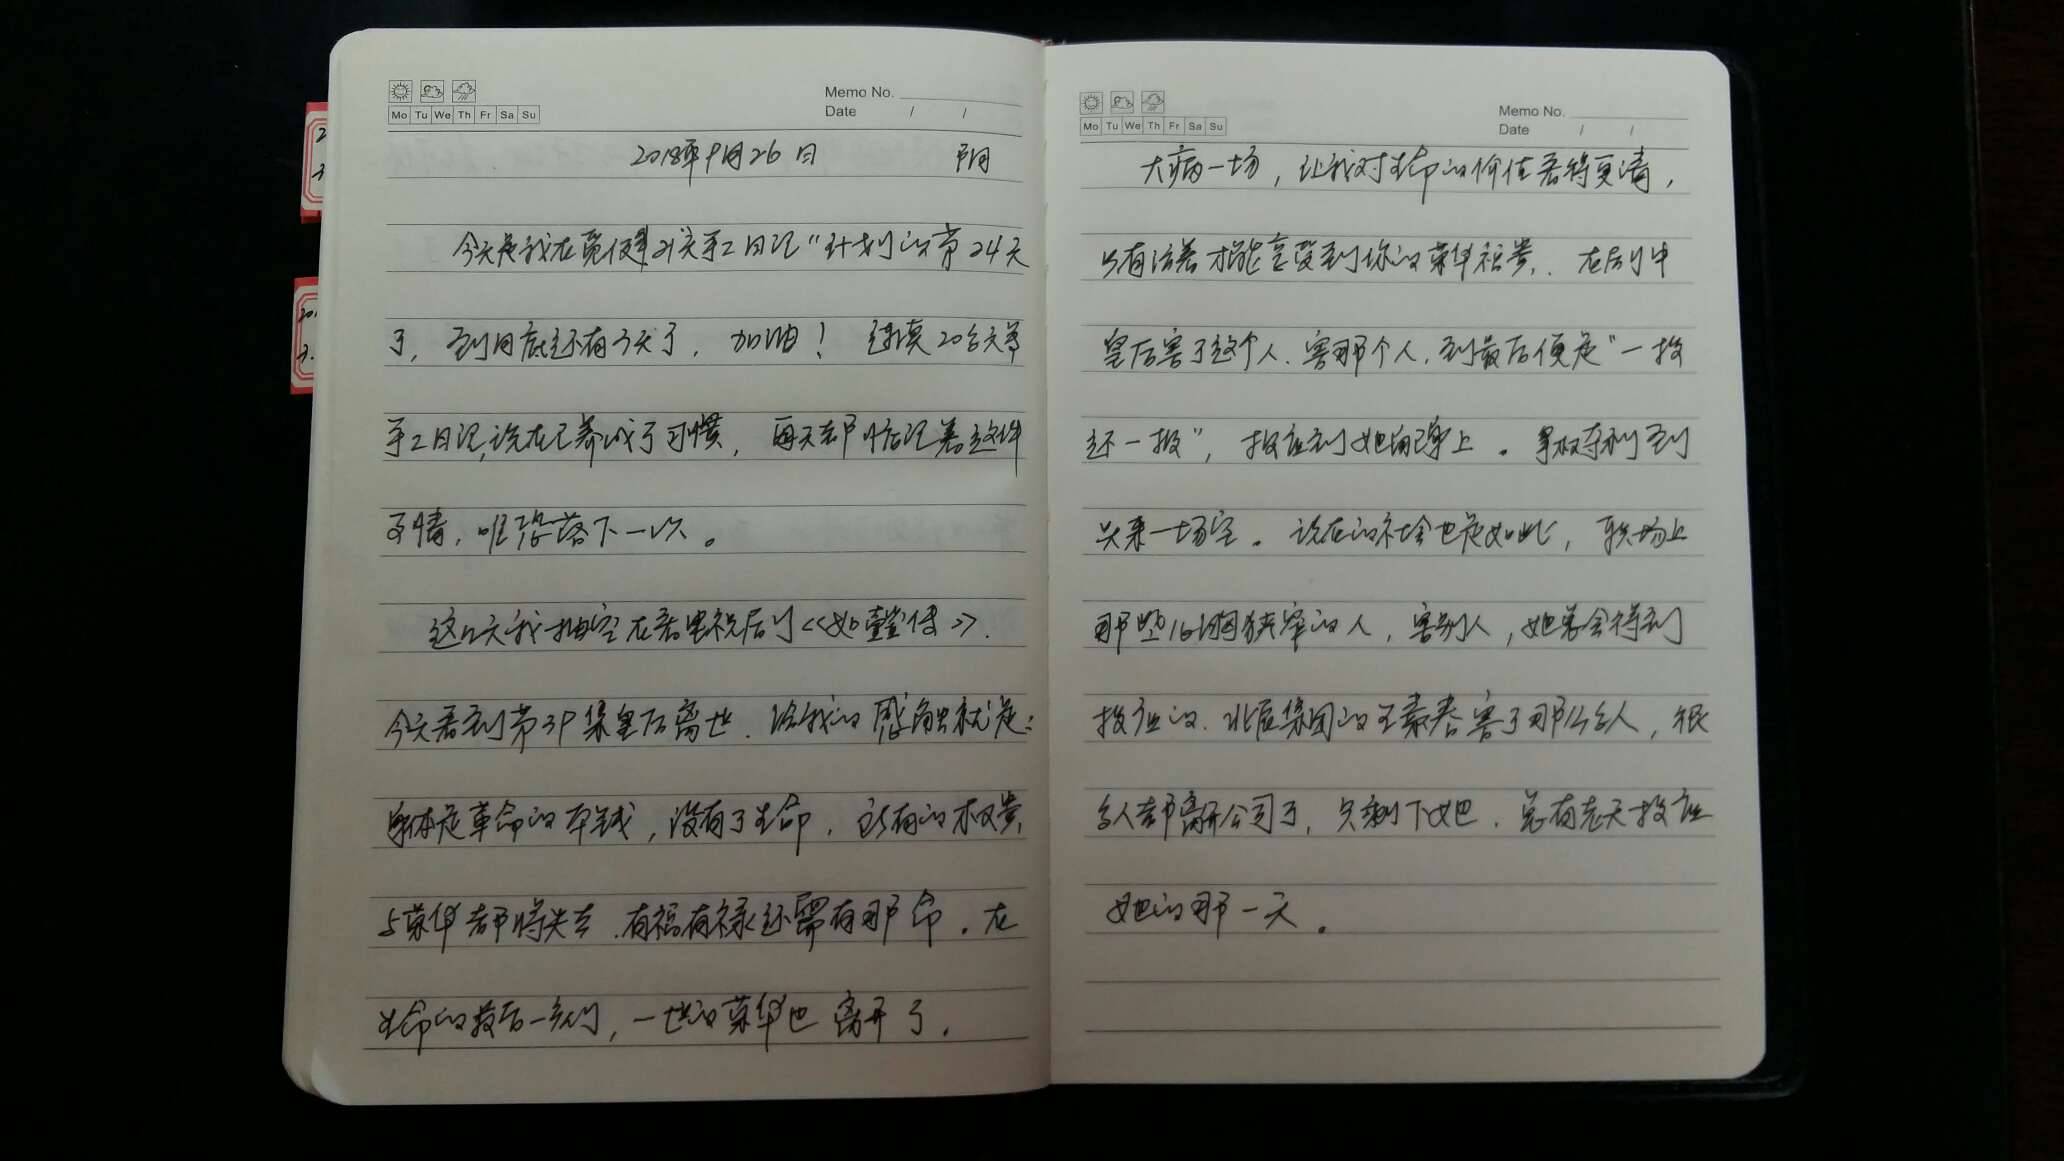 Memo No.
Date / /
Mo Tu We Th Fr Sa Su
2018年9月26日 阴
今天是我在"21天手工日记"计划的第24天
了，到月底还有3天了，加油！连续20多天写
手工日记，现在已养成了习惯，每天都惦记着这件
事情，唯恐落下一次。
这几天我抽空在看电视剧《如懿传》.
今天看到第39集皇后离世.给我的感触就是：
身体是革命的本钱，没有了生命，所有的权贵、
与荣华都将失去.有福有禄还需有那命.在
生命的最后一刻，一世的荣华也离开了.
Memo No.
Date / /
Mo Tu We Th Fr Sa Su
大病一场，让我对生命的价值看得更清，
只有活着才能享受到你的荣华福贵.在剧中
皇后害了这个人、害那个人，到最后便是"一报
还一报"，报应到她自己身上。争权夺利到
头来一场空。现在的社会也是如此，职场上
那些心胸狭窄的人，害别人，她总会得到
报应的.集团的王害了那么多人，很
多人都离开公司了，只剩下她.总有老天报应
她的那一天。